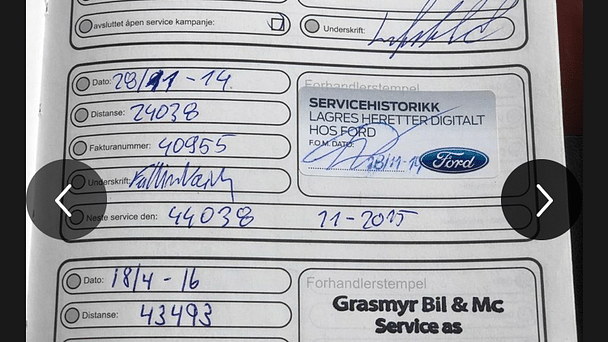 avsluttet åpen service kampanje:
Underskrift:
Dato: 28/11-14
Distanse: 24038
Fakturanummer: 40955
Underskrift:
Neste service den: 44038 11-2015
Forhandlerstempel
SERVICEHISTORIKK
LAGRES HERETTER DIGITALT
HOS FORD
F.O.M. DATO:
28/11-14
Ford
Dato: 18/4-16
Distanse: 43493
Forhandlerstempel
Grasmyr Bil & Mc
Service as